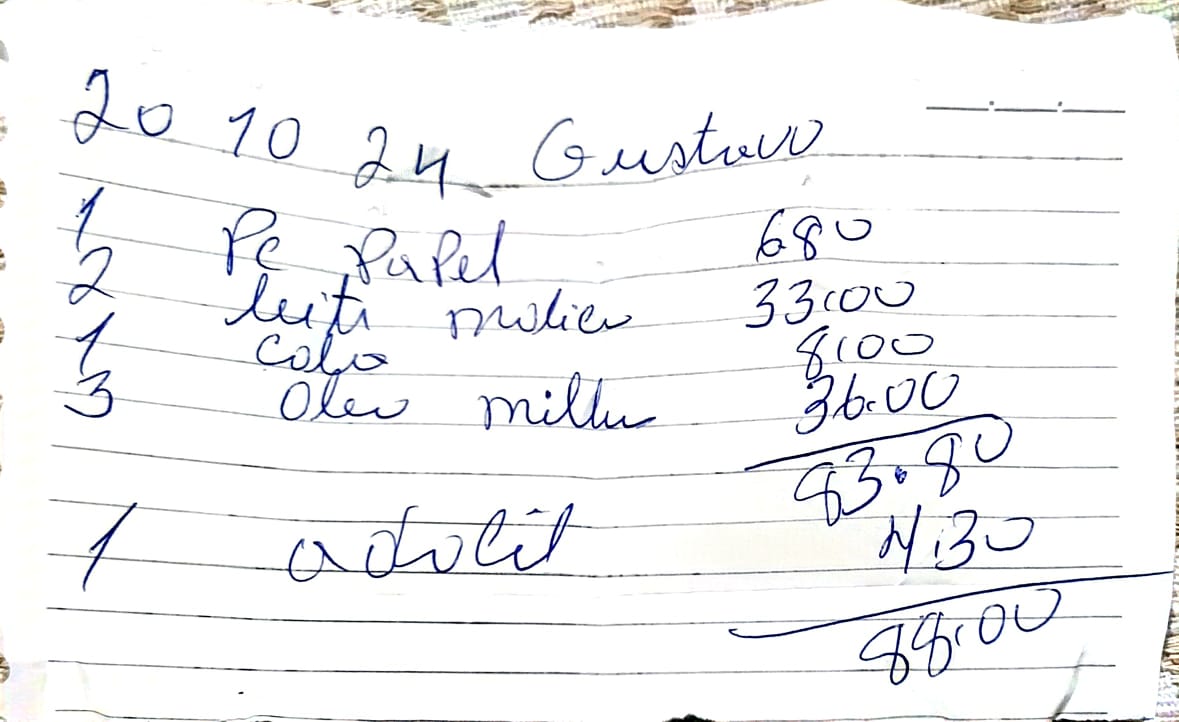 20 10 24 Gustavo
1 Pc Papel 680
2 leiti molico 33,00
1 colo 8,00
3 Oleo millu 36.00
83.80
1 adocil 4.30
88,00